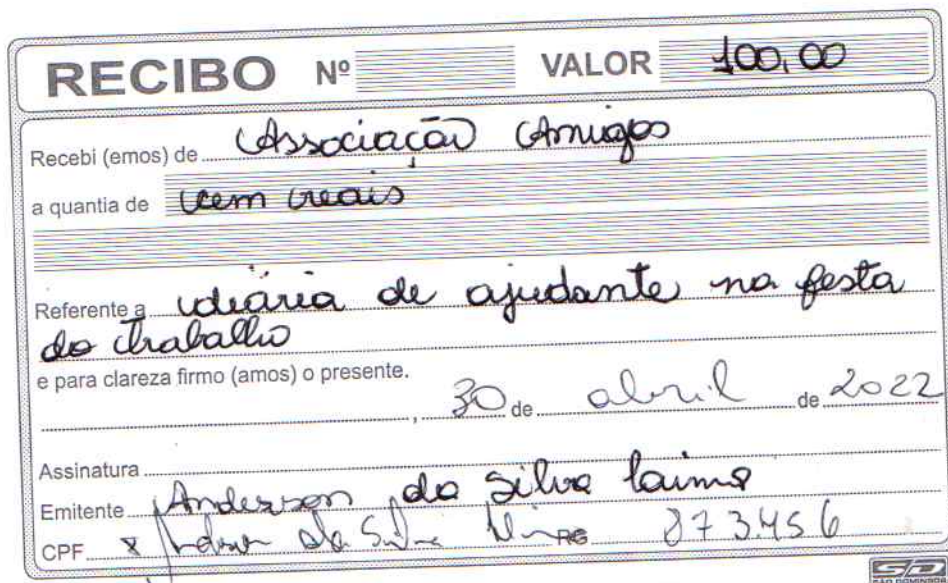 RECIBO Nº VALOR 100,00
Recebi (emos) de Associação Amigos
a quantia de cem reais
Referente a diária de ajudante na festa
do trabalho
e para clareza firmo (amos) o presente.
, 30 de abril de 2022
Assinatura
Emitente Anderson da Silva
CPF x Anderson da Silva RG 873.456
SD
SÃO DOMINGOS